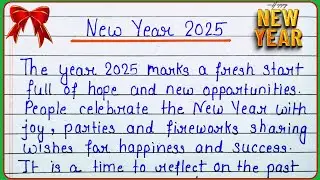 New Year 2025
NEW
YEAR
The year 2025 marks a fresh start
full of hope and new opportunities.
People celebrate the New Year with
joy, parties and fireworks sharing
wishes for happiness and success.
It is a time to reflect on the past